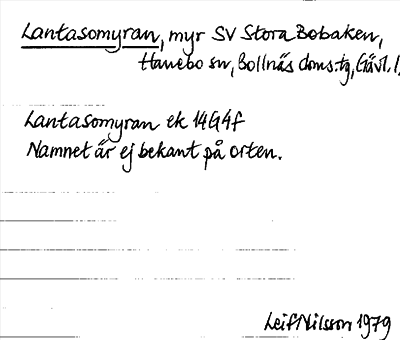 Lantasomyran, myr SV Stora Bobaken,
Hanebo sn, Bollnäs doms:tg, Gävl. l.
Lantasomyran ek 14G4f
Namnet är ej bekant på orten.
Leif Nilsson 1979